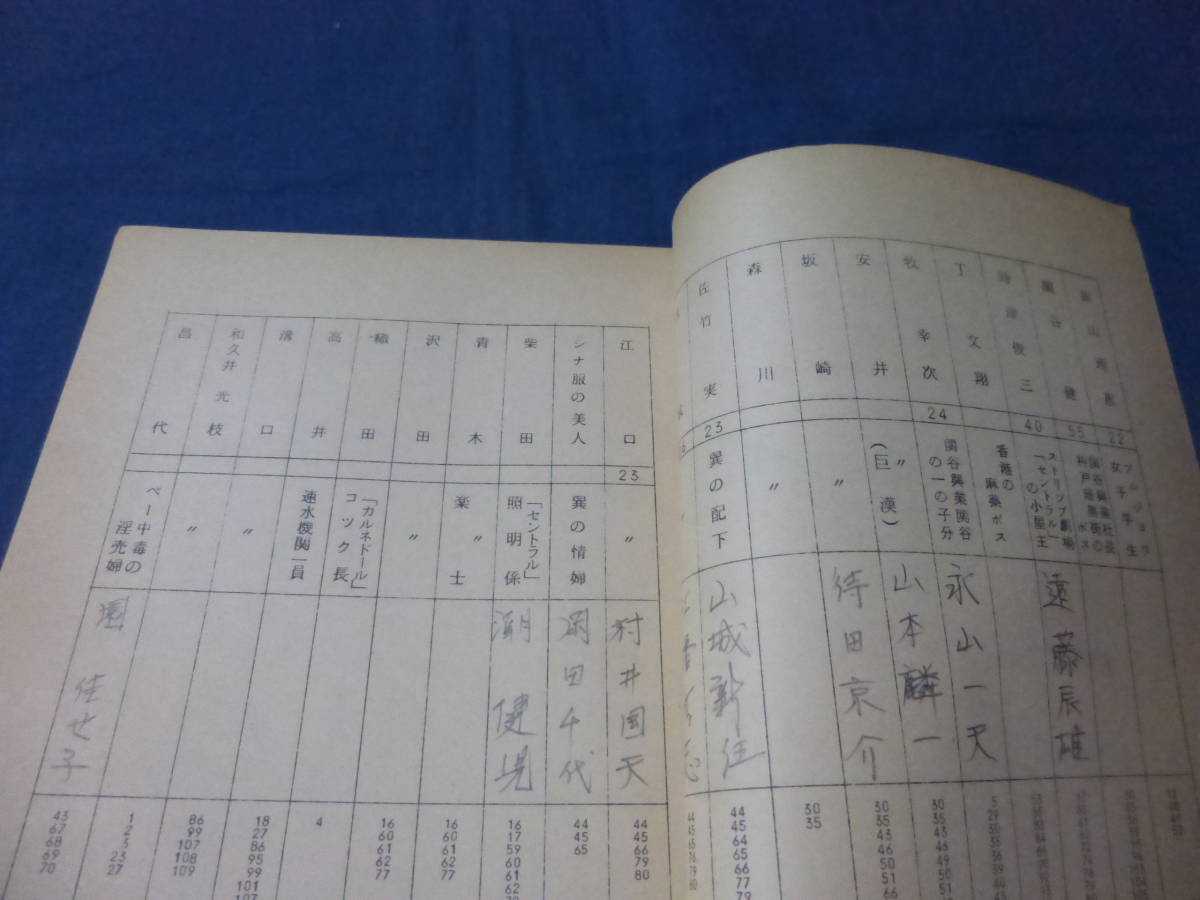 22
女子学生
健
55
関谷興業社長
神戸暗黒街のボス
時津俊三
40
ストリップ劇場
「セントラル」の小屋主
遠藤辰雄
丁文翔
香港の麻薬ボス
5
29
30
35
36
39
40
牧幸次
24
関谷興業関谷の一の子分
永山一天
30
35
43
46
49
50
51
安井
〃
(巨漢)
山本麟一
30
35
43
46
50
51
66
坂崎
〃
待田京介
30
35
森川
〃
佐竹実
23
巽の配下
山城新伍
44
45
64
65
66
77
79
44
45
65
76
79
80
江口
23
〃
村井国天
44
45
66
79
80
シナ服の美人
巽の情婦
岡田千代
44
45
65
柴田
「セントラル」照明係
潮健児
16
17
59
60
61
62
青木
〃
楽士
16
60
61
62
77
沢田
〃
16
60
61
62
77
織田
「カルネドール」コック長
高井
速水機関一員
4
溝口
〃
18
27
86
95
99
101
107
和久井光枝
〃
86
99
107
108
109
昌代
ペー中毒の淫売婦
1
2
5
23
27
園佳也子
43
67
68
69
70